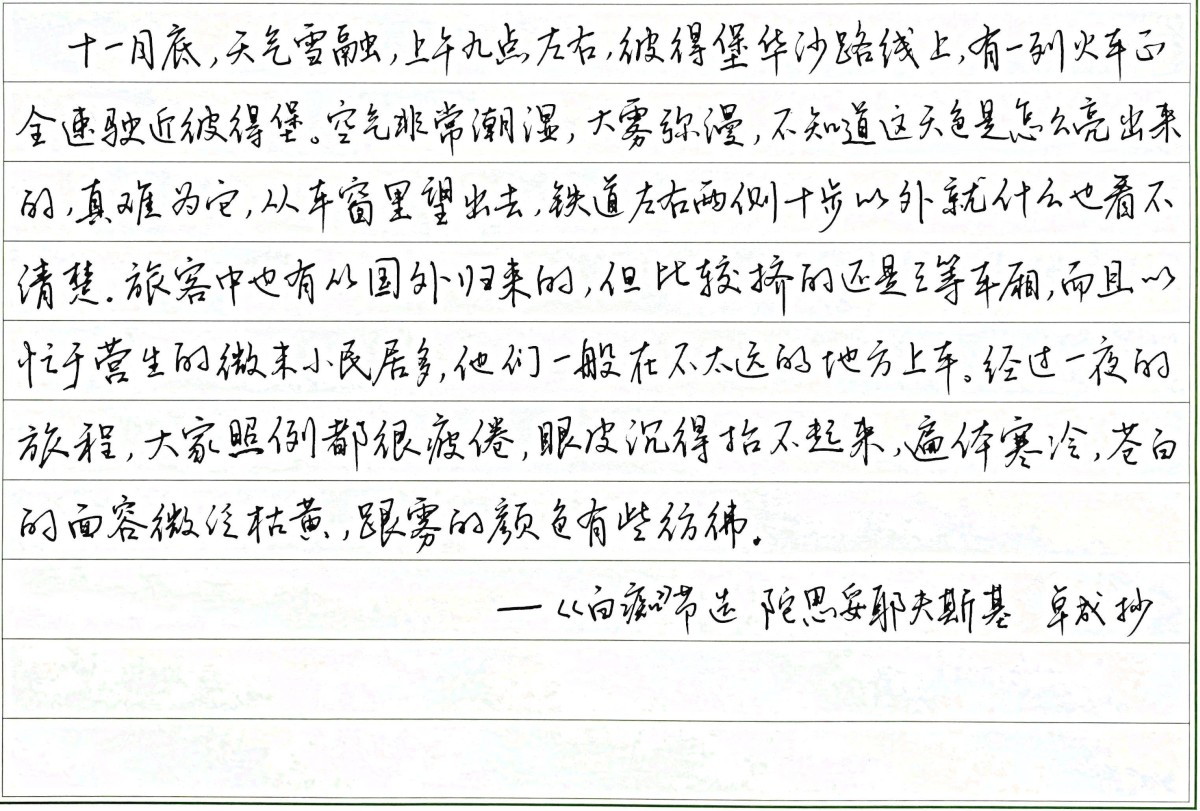 十一月底,天气雪融,上午九点左右,彼得堡华沙路线上,有一列火车正
全速驶近彼得堡。空气非常潮湿,大雾弥漫,不知道这天色是怎么亮出来
的,真难为它,从车窗里望出去,铁道左右两侧十步以外就什么也看不
清楚。旅客中也有从国外归来的,但比较挤的还是三等车厢,而且以
忙于营生的微末小民居多,他们一般在不太远的地方上车。经过一夜的
旅程,大家照例都很疲倦,眼皮沉得抬不起来,遍体寒冷,苍白
的面容微泛枯黄,跟雾的颜色有些仿佛。
—《白痴》节选 陀思妥耶夫斯基 卓成抄